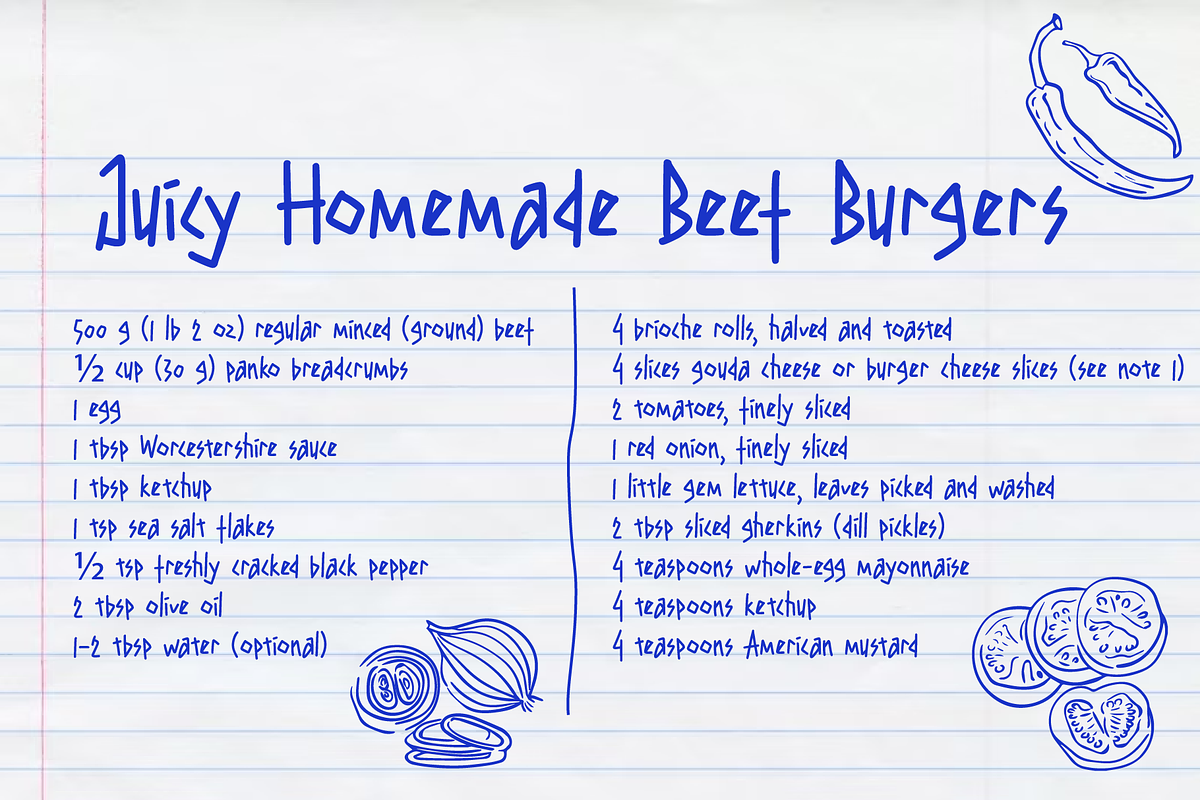 Juicy Homemade Beef Burgers
500 g (1 lb 2 oz) regular minced (ground) beef
½ cup (30 g) panko breadcrumbs
1 egg
1 tbsp Worcestershire sauce
1 tbsp ketchup
1 tsp sea salt flakes
½ tsp freshly cracked black pepper
2 tbsp olive oil
1-2 tbsp water (optional)
4 brioche rolls, halved and toasted
4 slices gouda cheese or burger cheese slices (see note 1)
2 tomatoes, finely sliced
1 red onion, finely sliced
1 little gem lettuce, leaves picked and washed
2 tbsp sliced gherkins (dill pickles)
4 teaspoons whole-egg mayonnaise
4 teaspoons ketchup
4 teaspoons American mustard